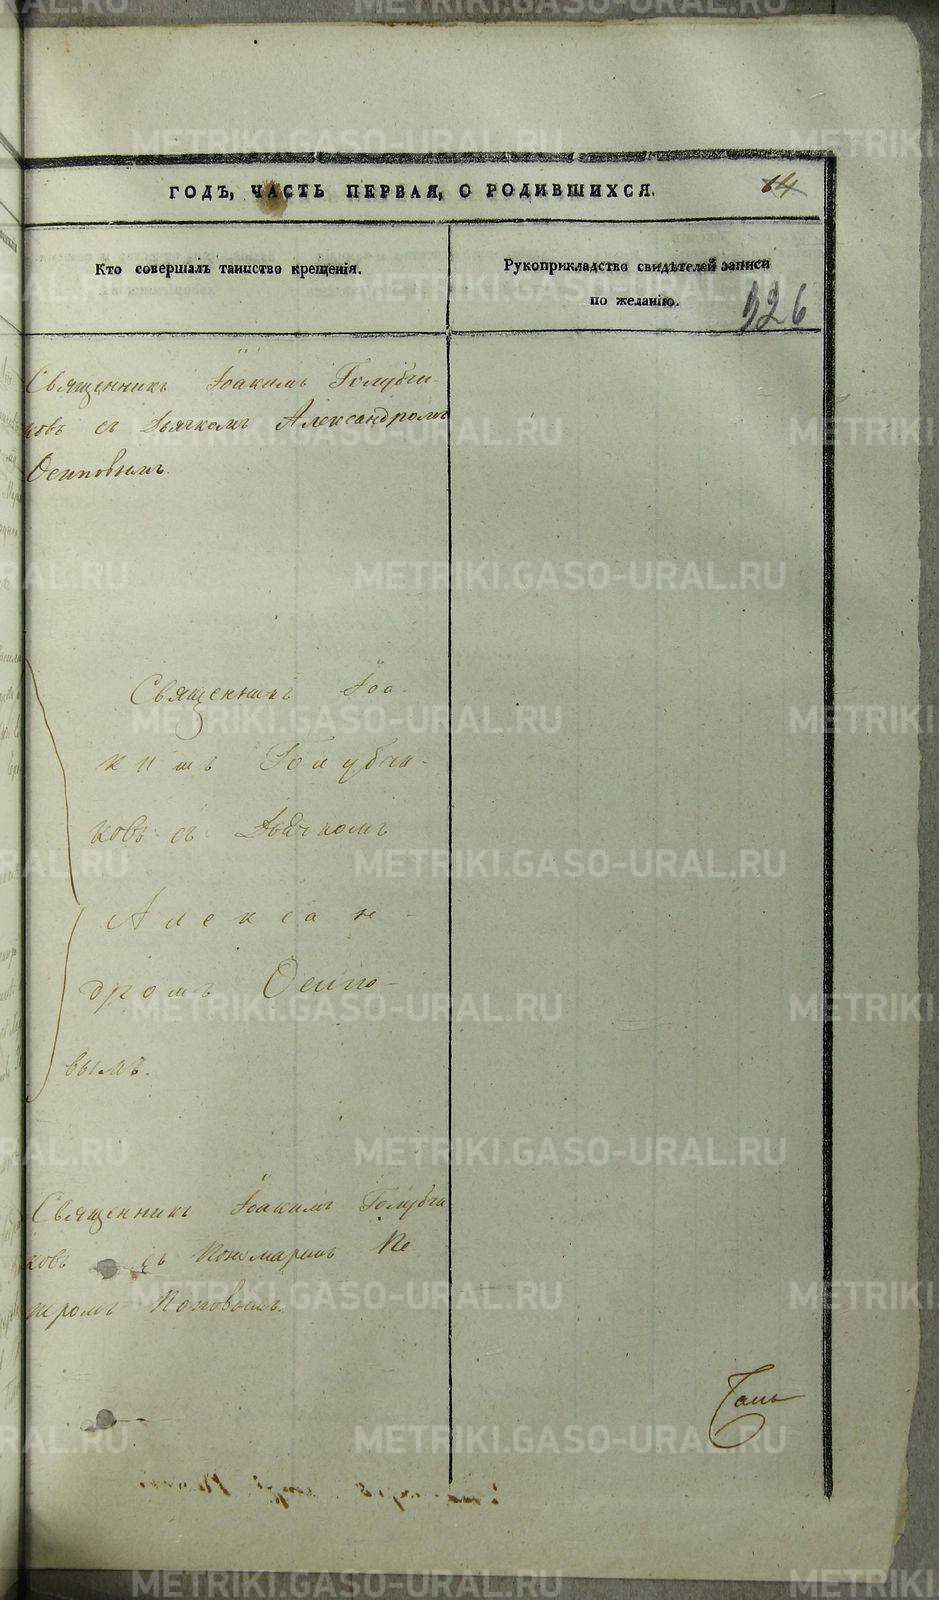 ГОДЪ, ЧАСТЬ ПЕРВАЯ, О РОДИВШИХСЯ.
14
Кто совершалъ таинство крещенія.
Рукоприкладство свидѣтелей записи
по желанію.
326
Священникъ Іоакимъ Голубчи-
ковъ съ Дьячкомъ Александромъ
Осиповымъ.
Священникъ Іоа-
кимъ Голубчи-
ковъ съ Дьячкомъ
Алексан-
дромъ Осипо-
вымъ.
Священникъ Іоакимъ Голубчи
ковъ съ Пономаремъ Пе
тромъ Поповымъ.
METRIKI.GASO-URAL.RU